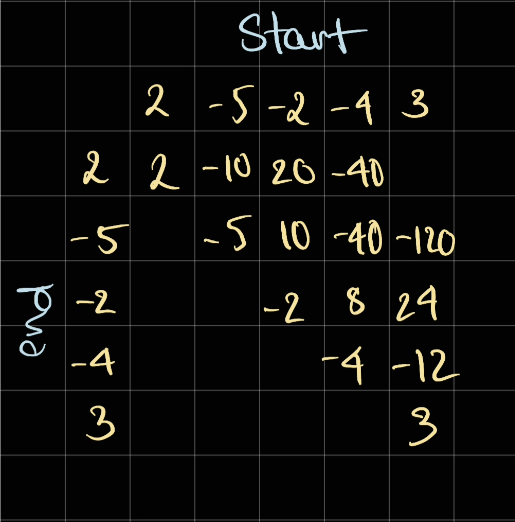 Start
2 -5 -2 -4 3
2 2 -10 20 -40
-5 -5 10 -40 -120
-2 -2 8 24
-4 -4 -12
3 3
end